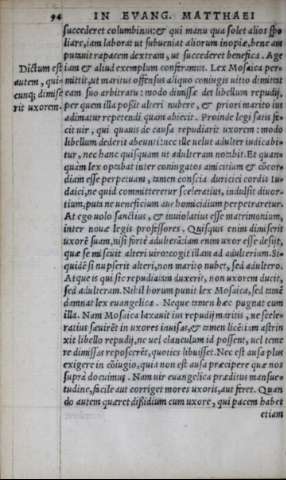 94 IN EVANG. MATTHAEI
succederet columbinus: & qui manu qua solet alios spo
liare, iam laborat ut subueniat aliorum inopiæ, bene am
putauit rapacem dextram, ut succederet benefica. Age
Dictum est iam & aliud exemplum conferamus. Lex Mosaica per=
autem, qui= mittit, ut maritus offensus aliquo coniugis uitio dimittat
cunq; dimise eam suo arbitratu: modo dimissæ det libellum repudij,
rit uxorem. per quem illa possit alteri nubere, & priori marito ius
adimatur repetendi quam abiecit. Proinde legi satis fe=
cit uir, qui quauis de causa repudiarit uxorem: modo
libellum dederit abeunti: nec ille uelut adulter iudicabi=
tur, nec hanc quisquam ut adulteram notabit. Et quan=
quàm lex optabat inter coniugatos amicitiam & cõcor=
diam esse perpetuam, tamen conscia duricici cordis Iu=
daici, ne quid committeretur sceleratius, indulsit diuor=
tium, puta ne ueneficium aut homicidium perpetraretur.
At ego uolo sanctius, & inuiolatius esse matrimonium,
inter nouæ legis professores. Quisquis enim dimiserit
uxorē suam, nisi fortè adulterā (nam uxor esse desijt,
quæ se miscuit alteri uiro) cogit illam ad adulterium. Si=
quidē si nupserit alteri, non marito nubet, sed adultero.
Atque is qui sic repudiatam duxerit, non uxorem ducit,
sed adulteram. Nihil horum punit lex Mosaica, sed tamē
damnat lex euangelica. Neque tamen hæc pugnat cum
illa. Nam Mosaica laxauit ius repudij maritis, ne scele=
ratius sæuirēt in uxores inuisas, & tamen licētiam astrin
xit libello repudij, ne uel clanculum id possent, uel teme
re dimissas reposcerēt, quoties libuisset. Nec est ausa plus
exigere in cōiugio, quia non est ausa præcipere quæ nos
suprà docuimus. Nam uir euangelica præditus mansue=
tudine, facile aut corriget mores uxoris, aut feret. Quan
do autem quæret dissidium cum uxore, qui pacem habet
etiam